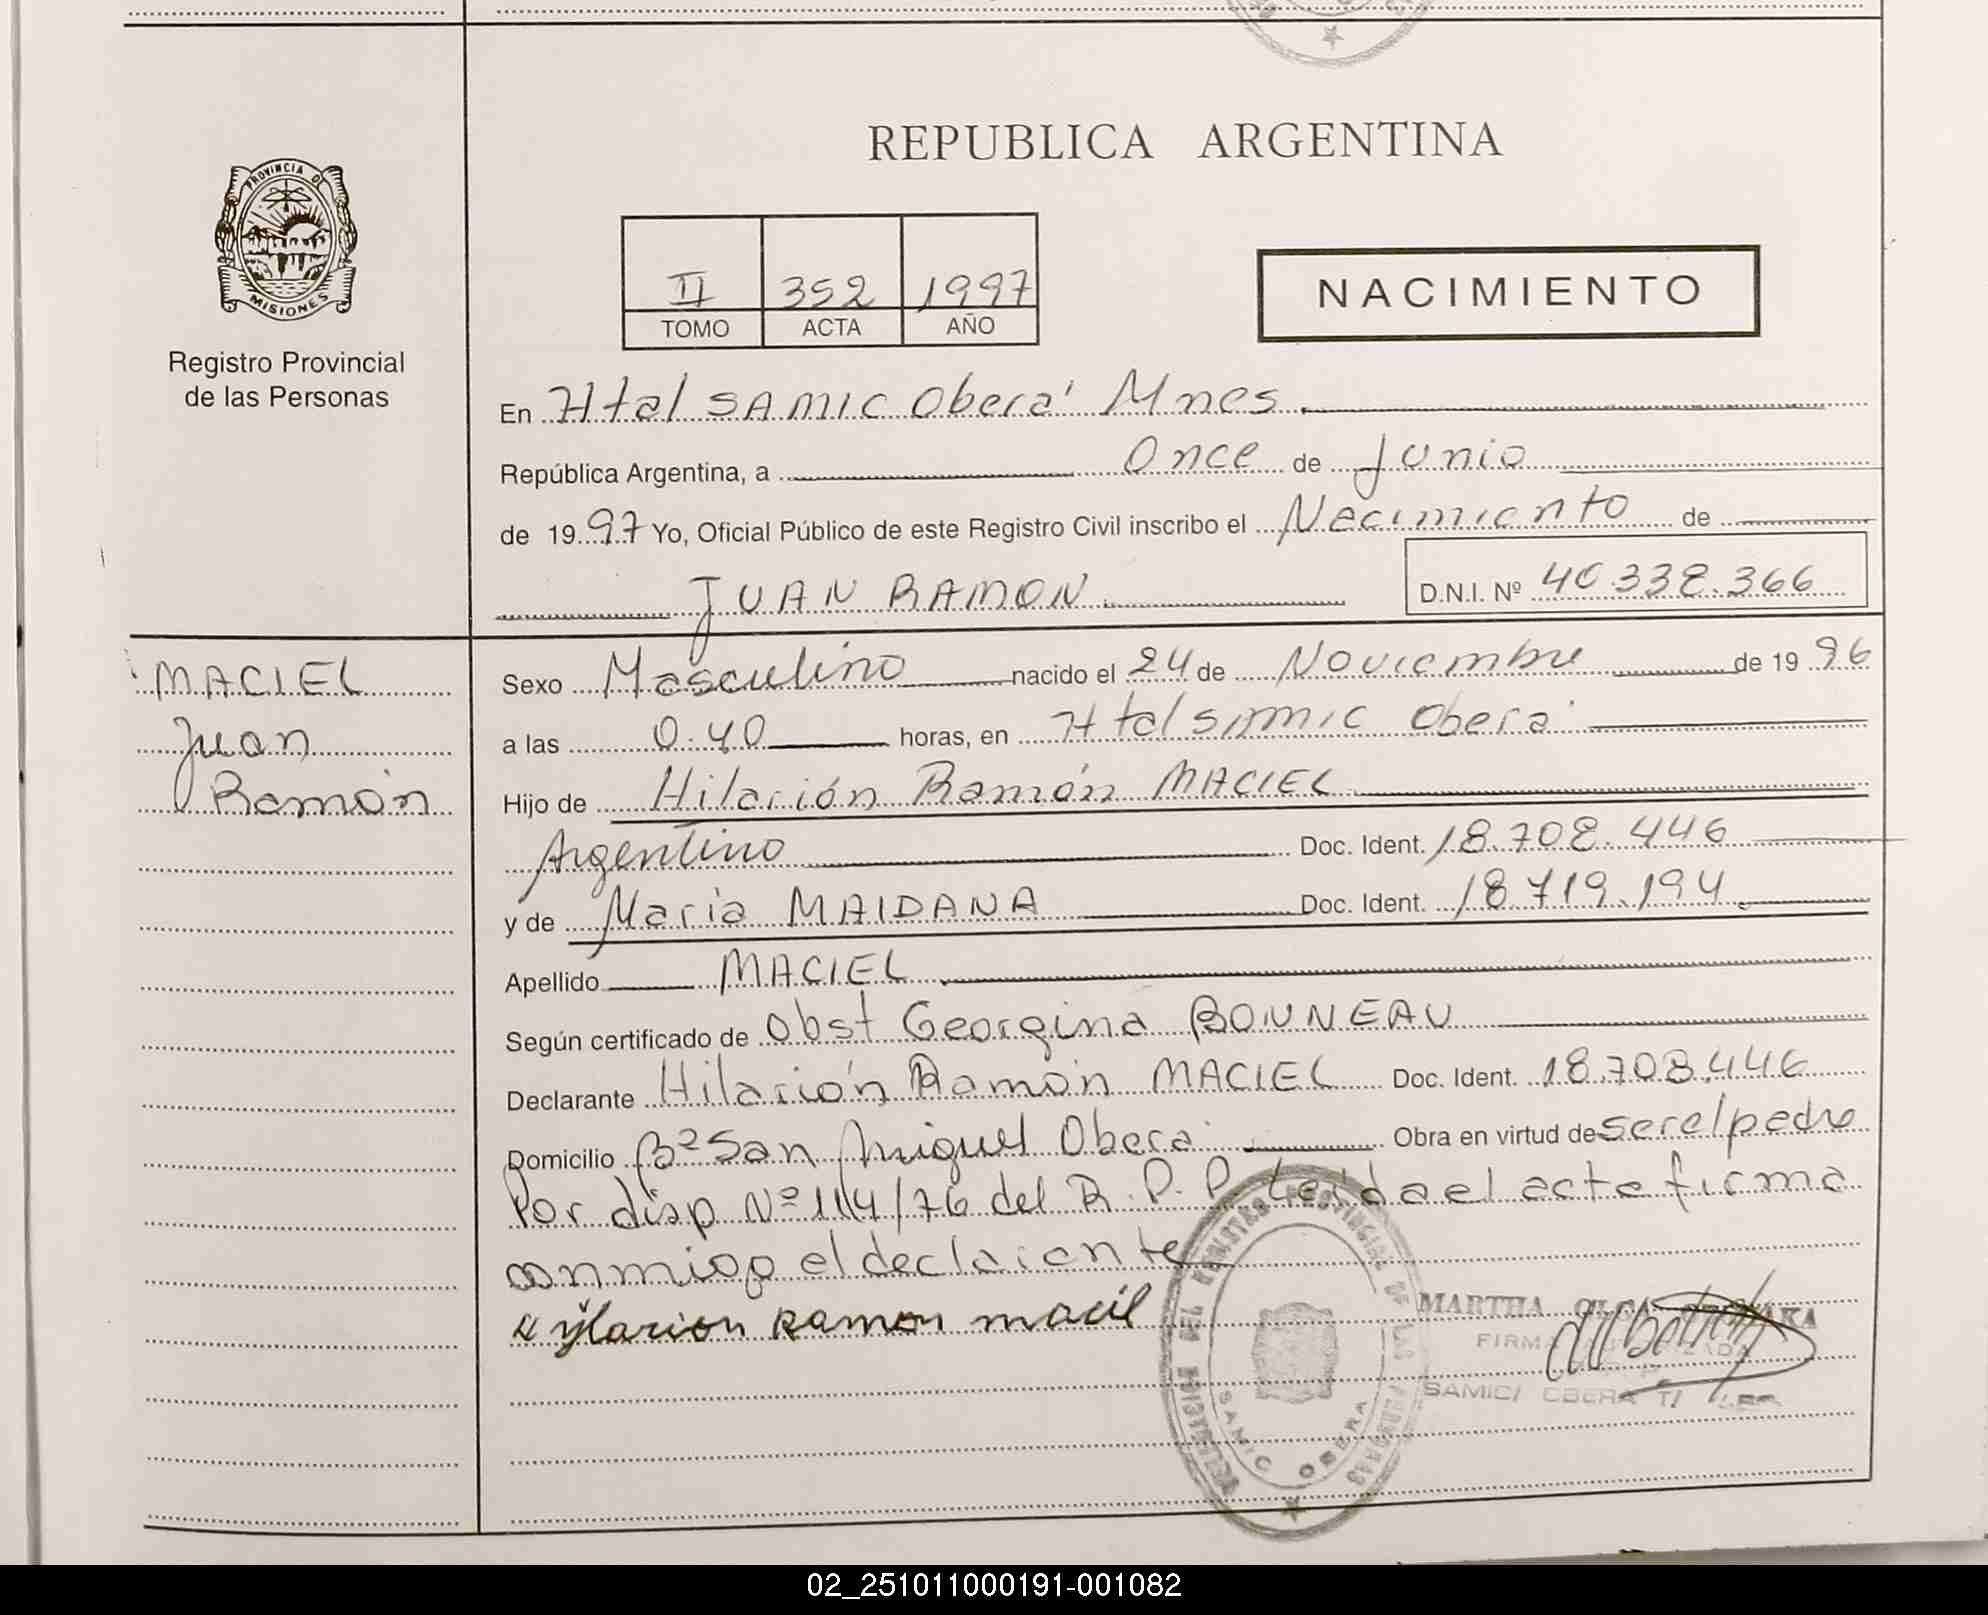 REPUBLICA ARGENTINA
PROVINCIA DE
MISIONES
Registro Provincial
de las Personas
II 352 1997
TOMO ACTA AÑO
NACIMIENTO
En Htal SAMIC Oberá Mnes
República Argentina, a Once de Junio
de 1997 Yo, Oficial Público de este Registro Civil inscribo el Nacimiento de
JUAN RAMON D.N.I. Nº 40.338.366
MACIEL
Juan
Ramón
Sexo Masculino nacido el 24 de Noviembre de 1996
a las 0.40 horas, en Htal SAMIC Oberá
Hijo de Hilarión Ramón MACIEL
Argentino Doc. Ident. 18.708.446
y de María MAIDANA Doc. Ident. 18.719.194
Apellido MACIEL
Según certificado de Obst Georgina BONNEAU
Declarante Hilarión Ramón MACIEL Doc. Ident. 18.708.446
Domicilio Bº San Miguel Oberá Obra en virtud de ser el padre
Por disp Nº 114/76 del R.P.P. Leída el acta firma
conmigo el declarante
ylarion Ramon macil
MARTHA
FIRMA
SAMIC OBERA
SAMIC OBERA
02_251011000191-001082